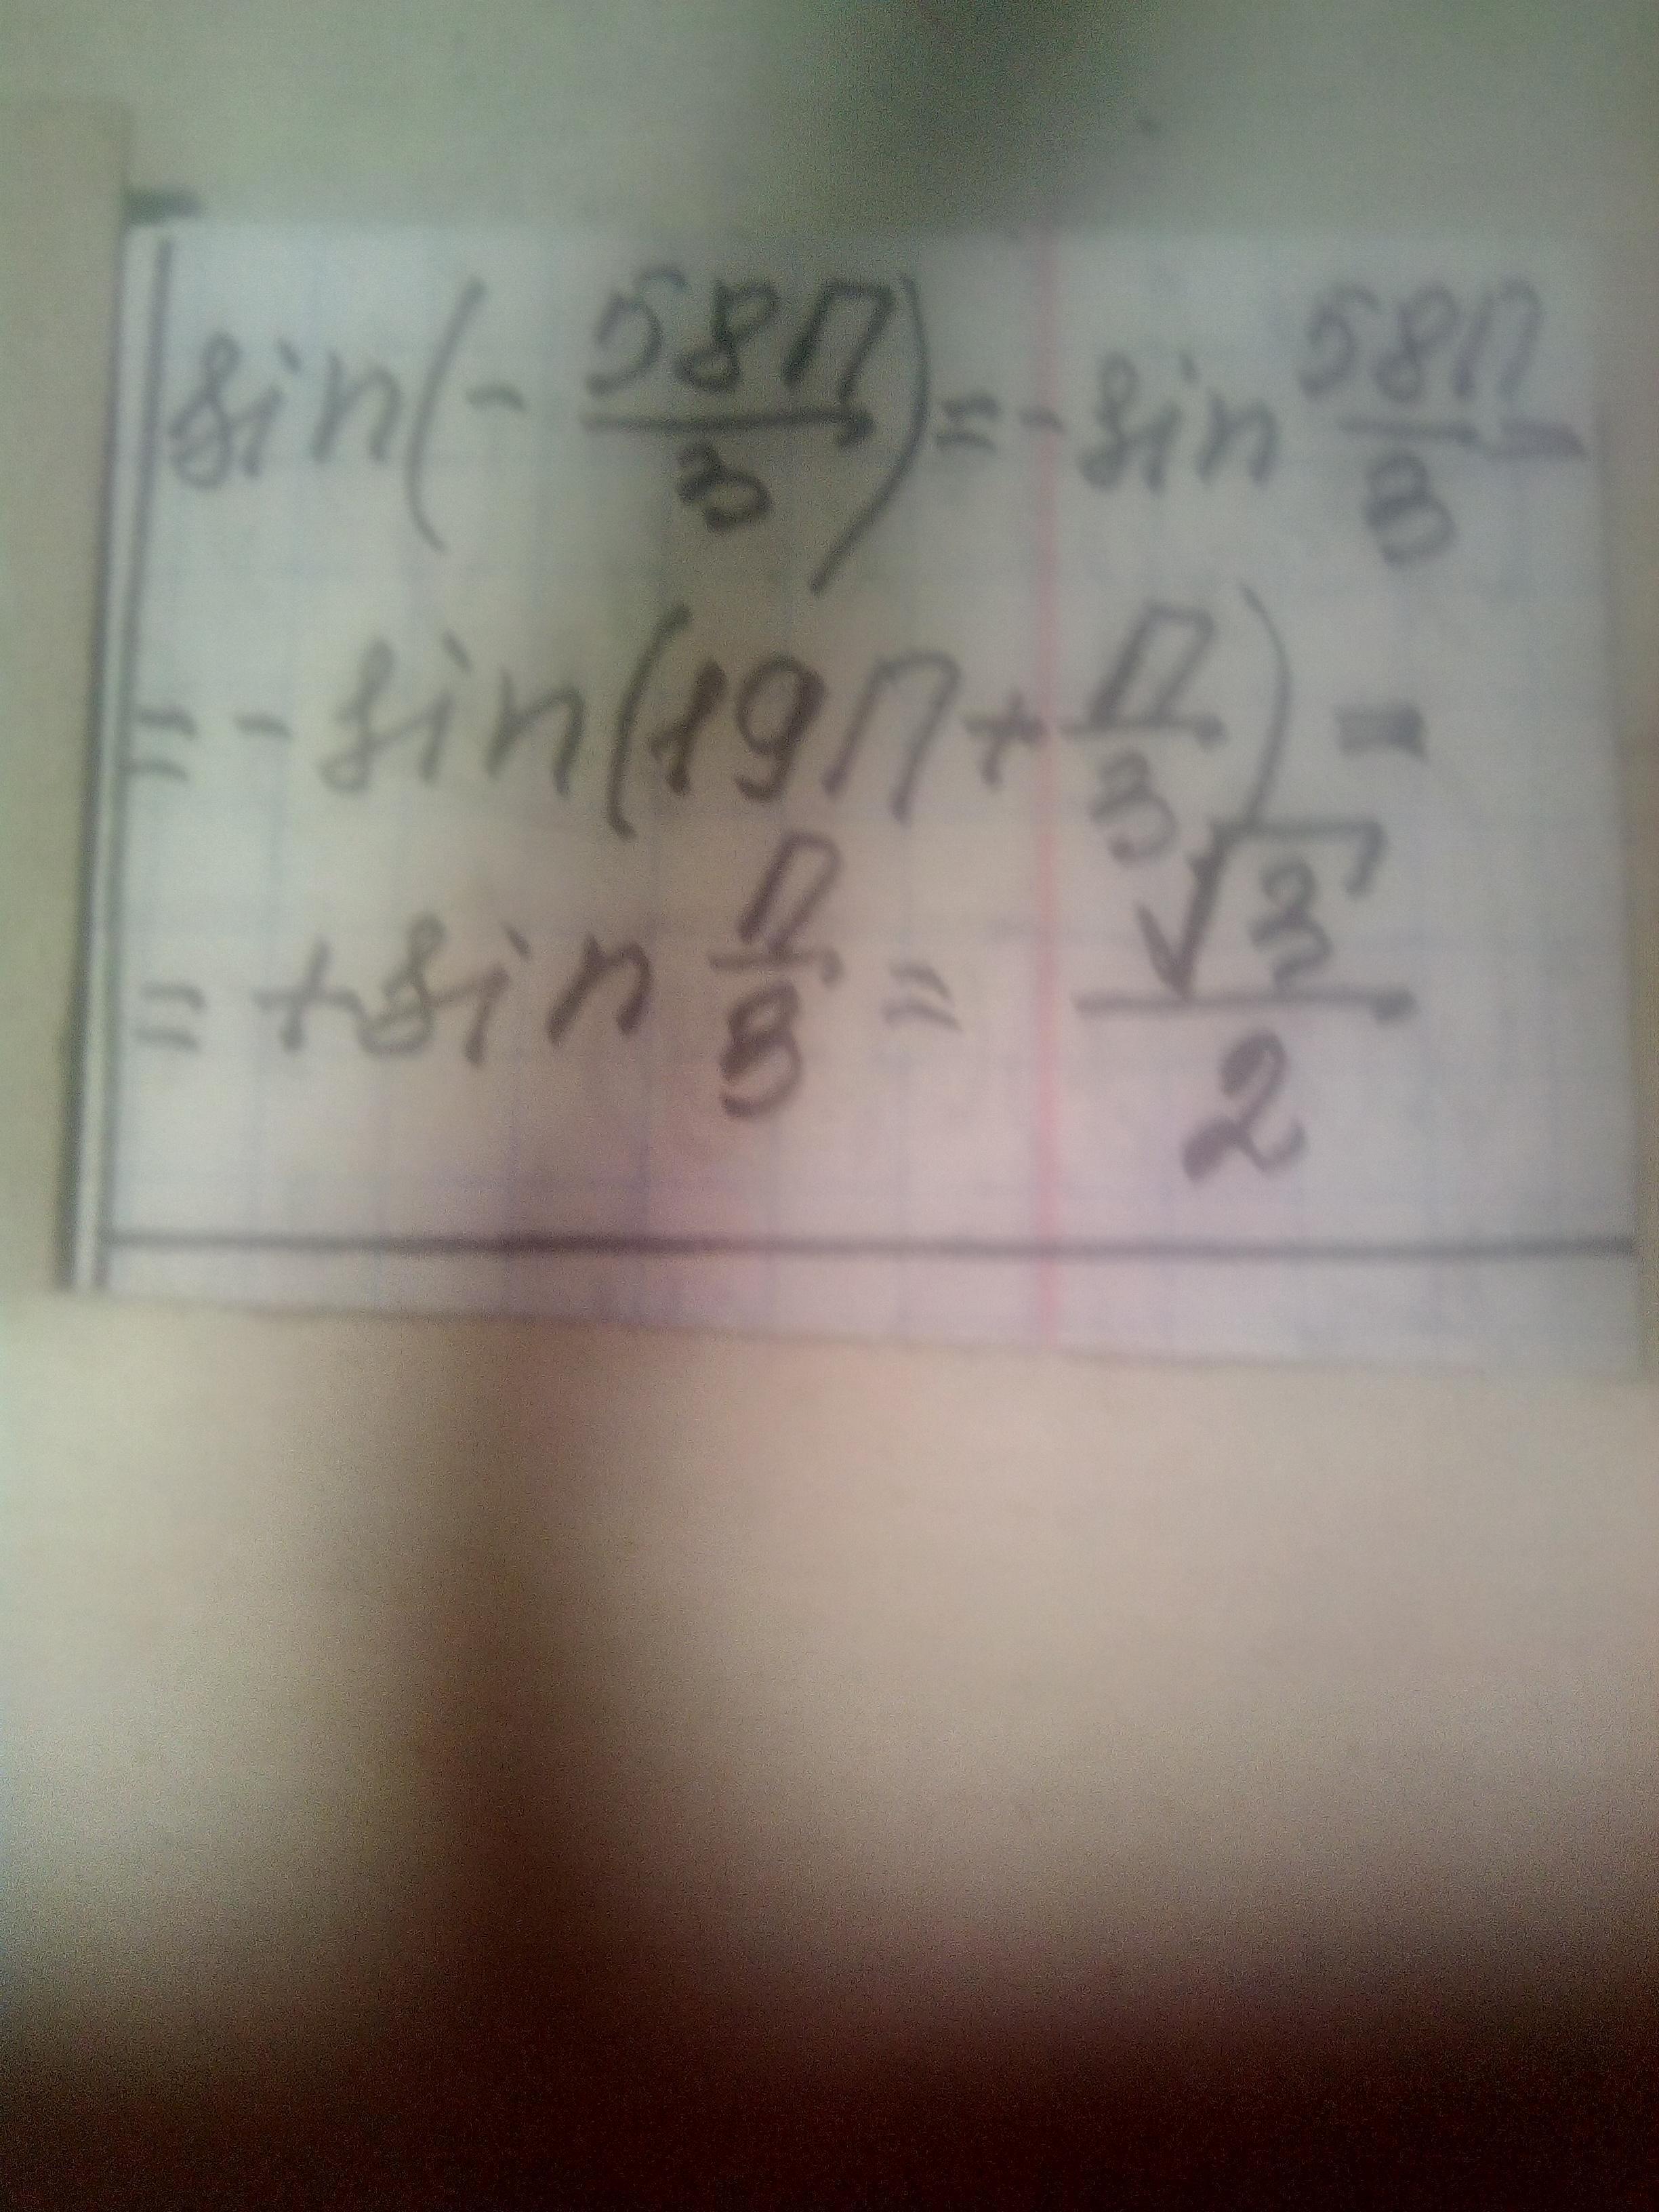 sin(-58π/3)=-sin 58π/3 =
=-sin(19π+π/3)=
=+sin π/3 = √3/2